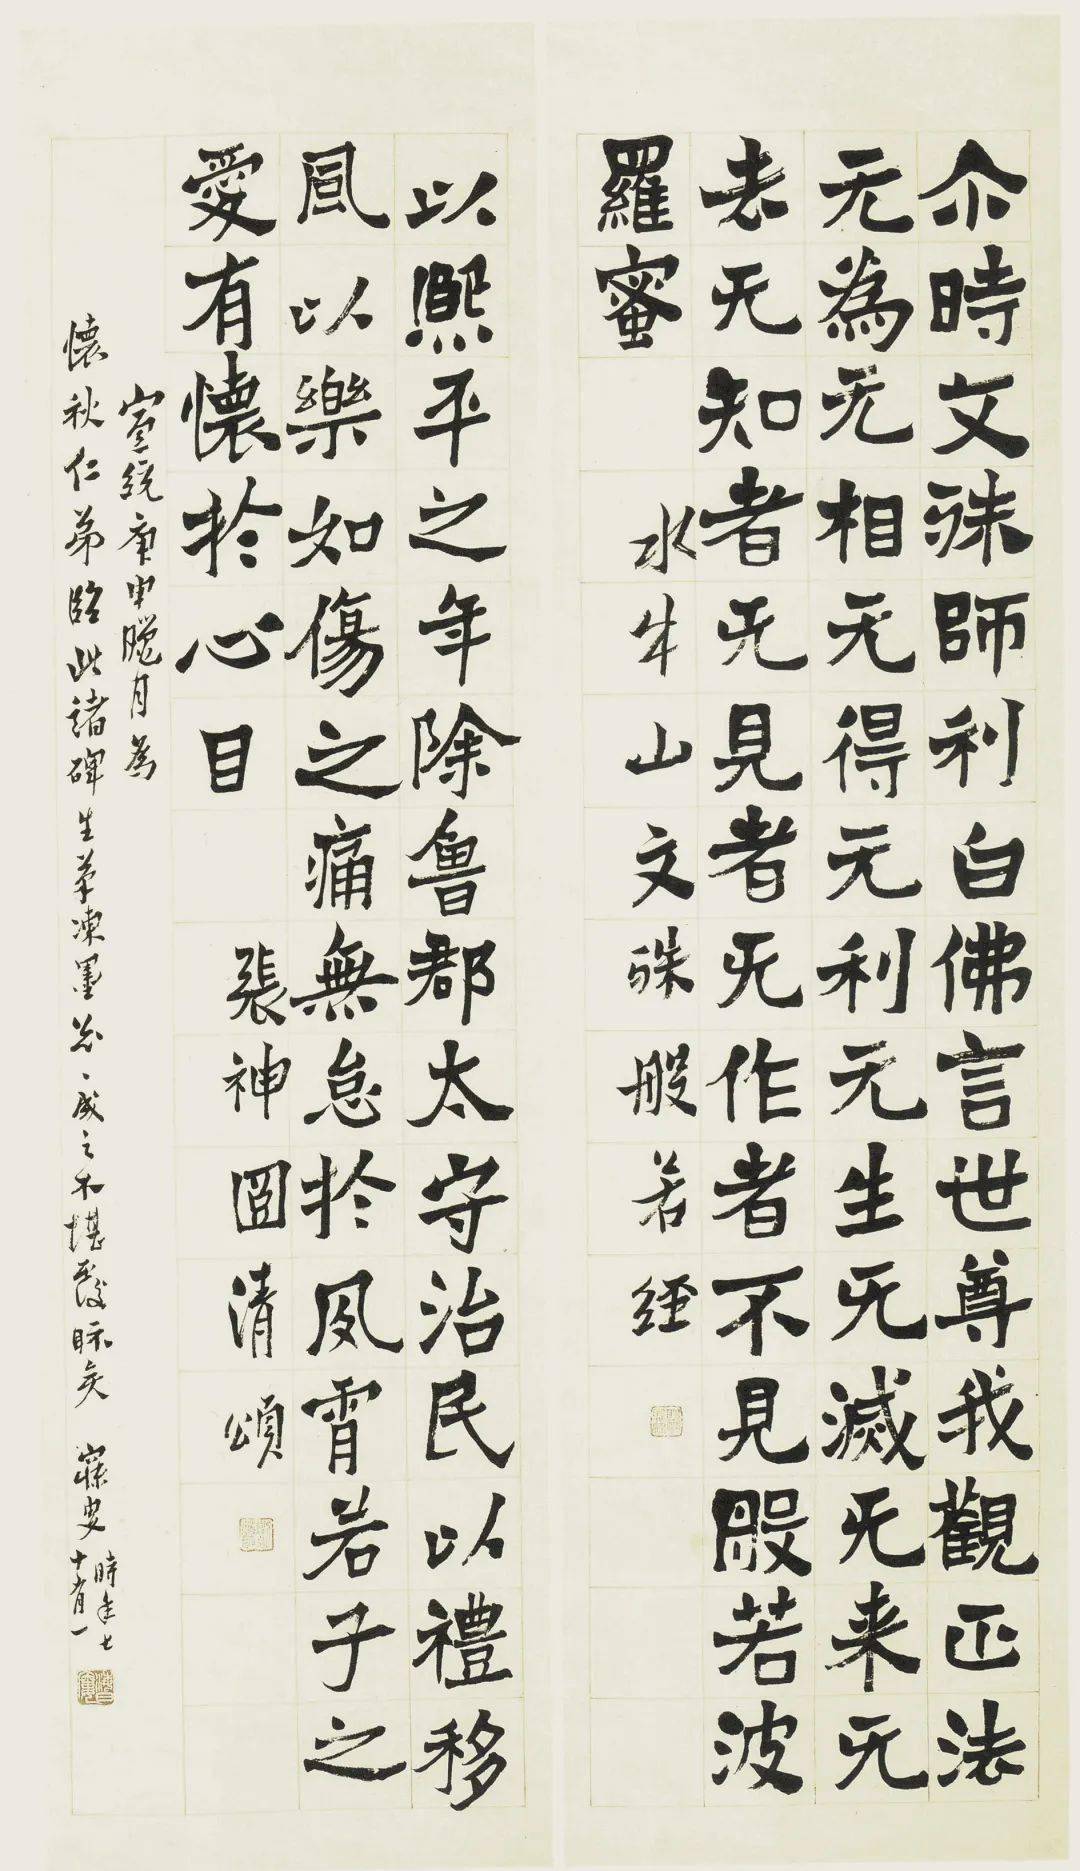 尒時文殊師利白佛言世尊我觀正法
无為无相无得无利无生无滅无来无
去无知者无見者无作者不見般若波
羅蜜
水牛山文殊般若経
以熙平之年除魯郡太守治民以禮移
風以樂如傷之痛無怠於夙宵若子之
愛有懷於心目
張神囧清頌
宣統庚申臘月為
懷秋仁弟臨此諸碑生筆凍墨成之不堪發眎矣 寐叟
時年七十有一